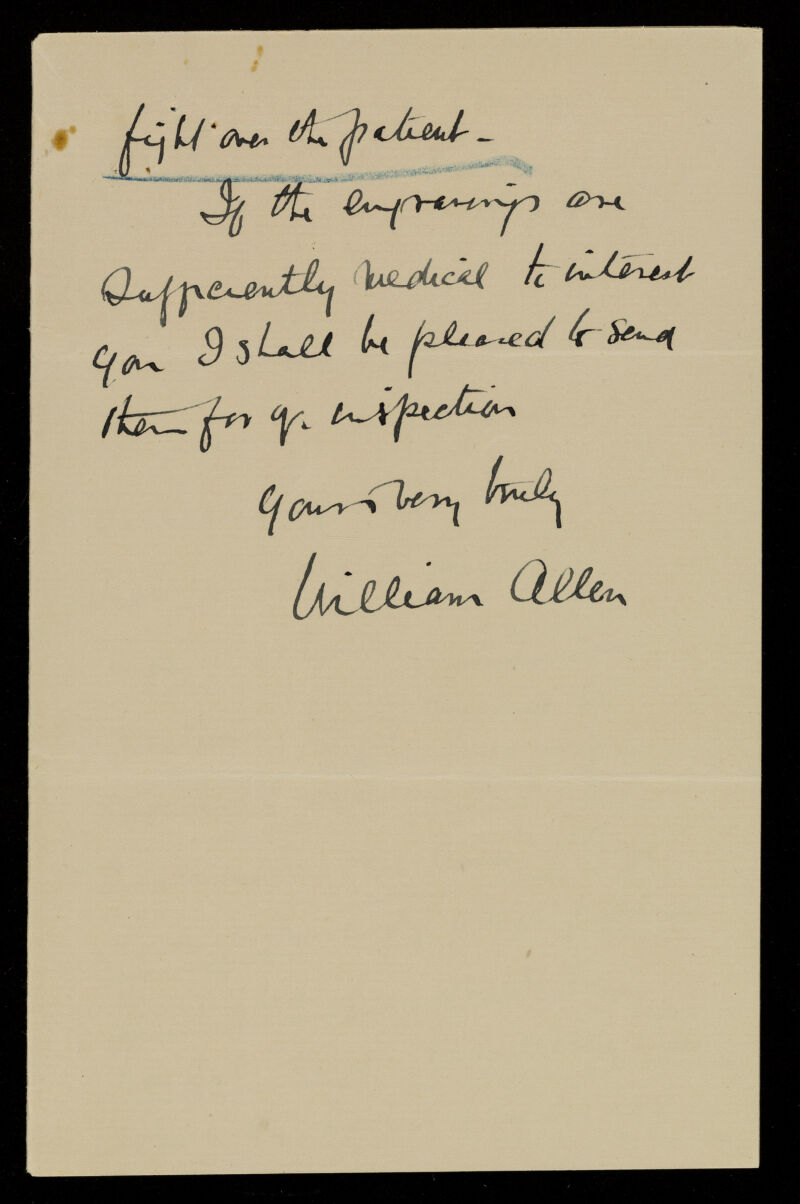 fight over the patient –
If the engravings are
sufficiently medical to interest
you I shall be pleased to send
them for yr. inspection
Yours very truly
William Allen